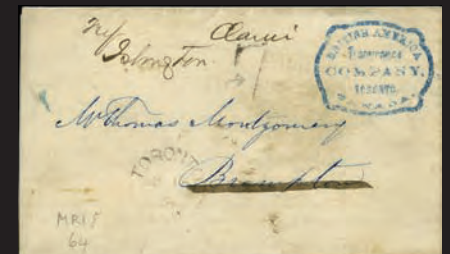 Islington
BRITISH AMERICA
COMPANY.
TORONTO
CANADA.
Mr Thomas Montgomery
TORONT
Brampton
MR 15
64